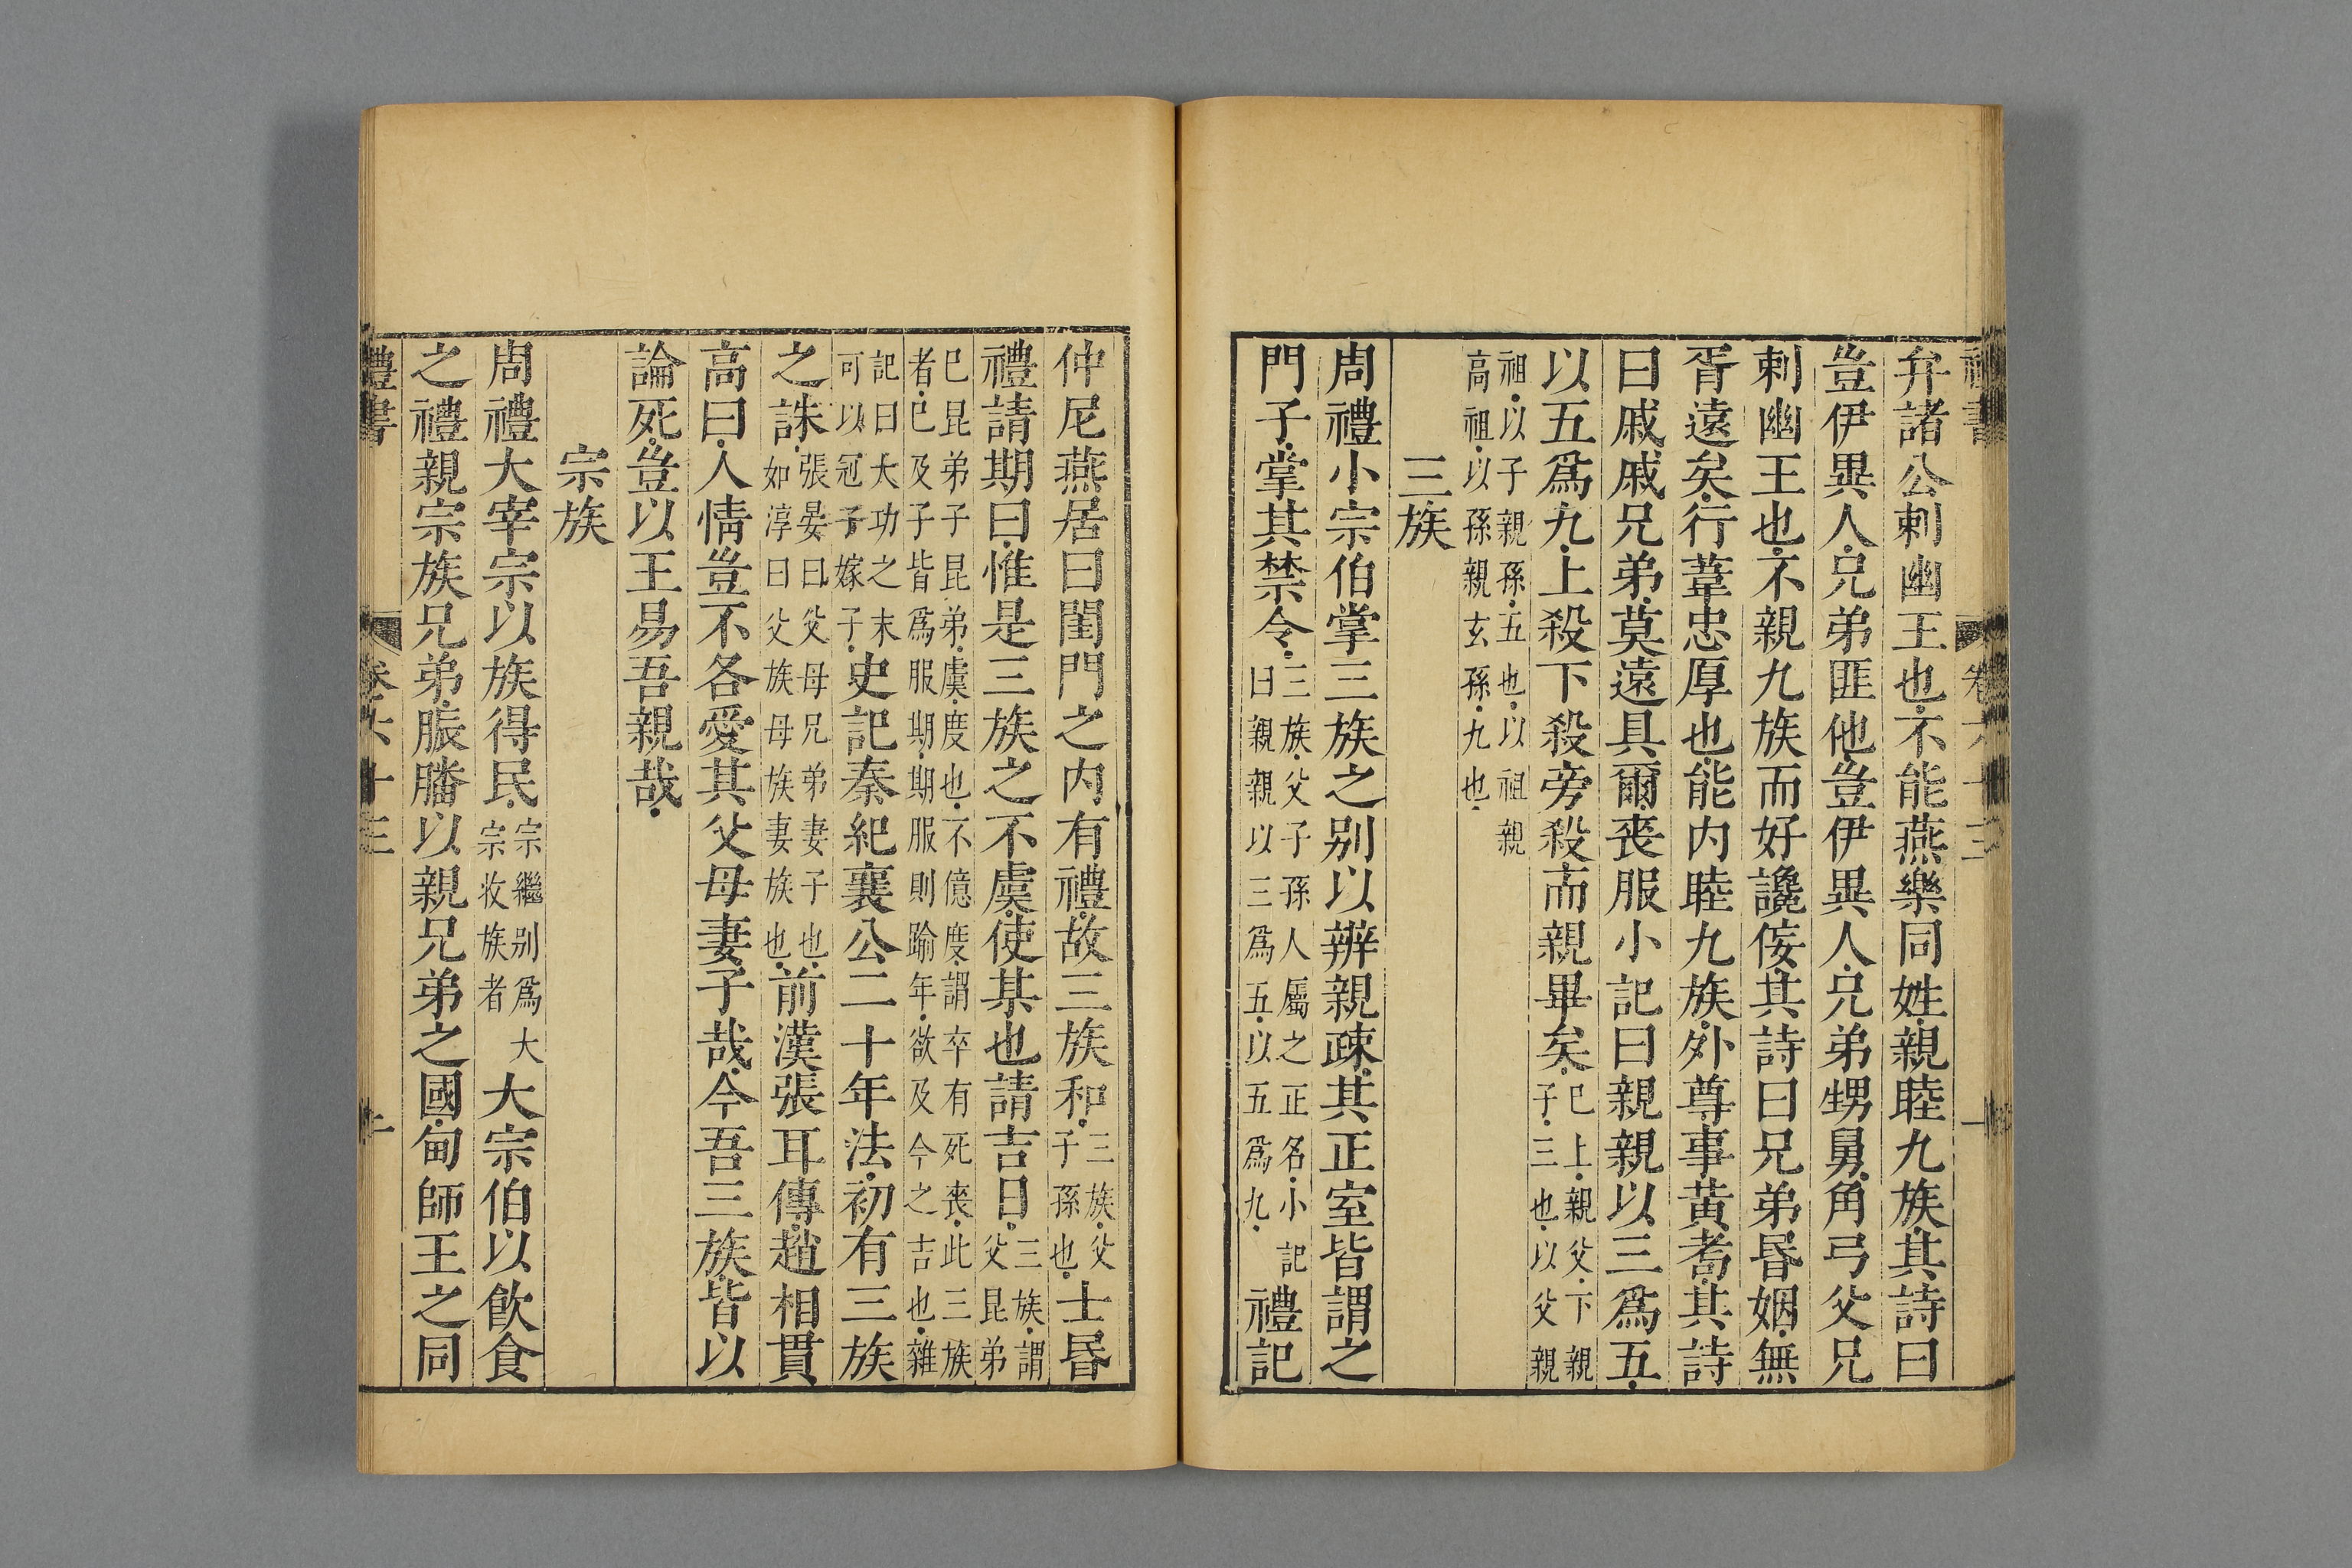 禮書 卷六十三 一
弁諸公刺幽王也不能燕樂同姓親睦九族其詩曰
豈伊異人兄弟匪他豈伊異人兄弟甥舅角弓父兄
刺幽王也不親九族而好讒佞其詩曰兄弟昏姻無
胥遠矣行葦忠厚也能内睦九族外尊事黃耇其詩
曰戚戚兄弟莫遠具爾喪服小記曰親親以三爲五
以五爲九上殺下殺旁殺而親畢矣巳上親父下親
子三也以父親
祖以子親孫五也以祖親
高祖以孫親玄孫九也
三族
周禮小宗伯掌三族之别以辨親疎其正室皆謂之
門子掌其禁令三族父子孫人屬之正名小記
曰親親以三爲五以五爲九禮記
仲尼燕居曰閨門之内有禮故三族和三族父
子孫也士昏
禮請期曰惟是三族之不虞使某也請吉日三族謂
父昆弟
巳昆弟子昆弟虞度也不億度謂卒有死喪此三族
者巳及子皆爲服期期服則踰年欲及今之吉也雜
記曰大功之末
可以冠子嫁子史記秦紀襄公二十年法初有三族
之誅張晏曰父母兄弟妻子也
如淳曰父族母族妻族也前漢張耳傳趙相貫
高曰人情豈不各愛其父母妻子哉今吾三族皆以
論死豈以王易吾親哉
宗族
周禮大宰宗以族得民宗繼别爲大
宗收族者大宗伯以飲食
之禮親宗族兄弟脤膰以親兄弟之國甸師王之同
禮書 卷六十三 一